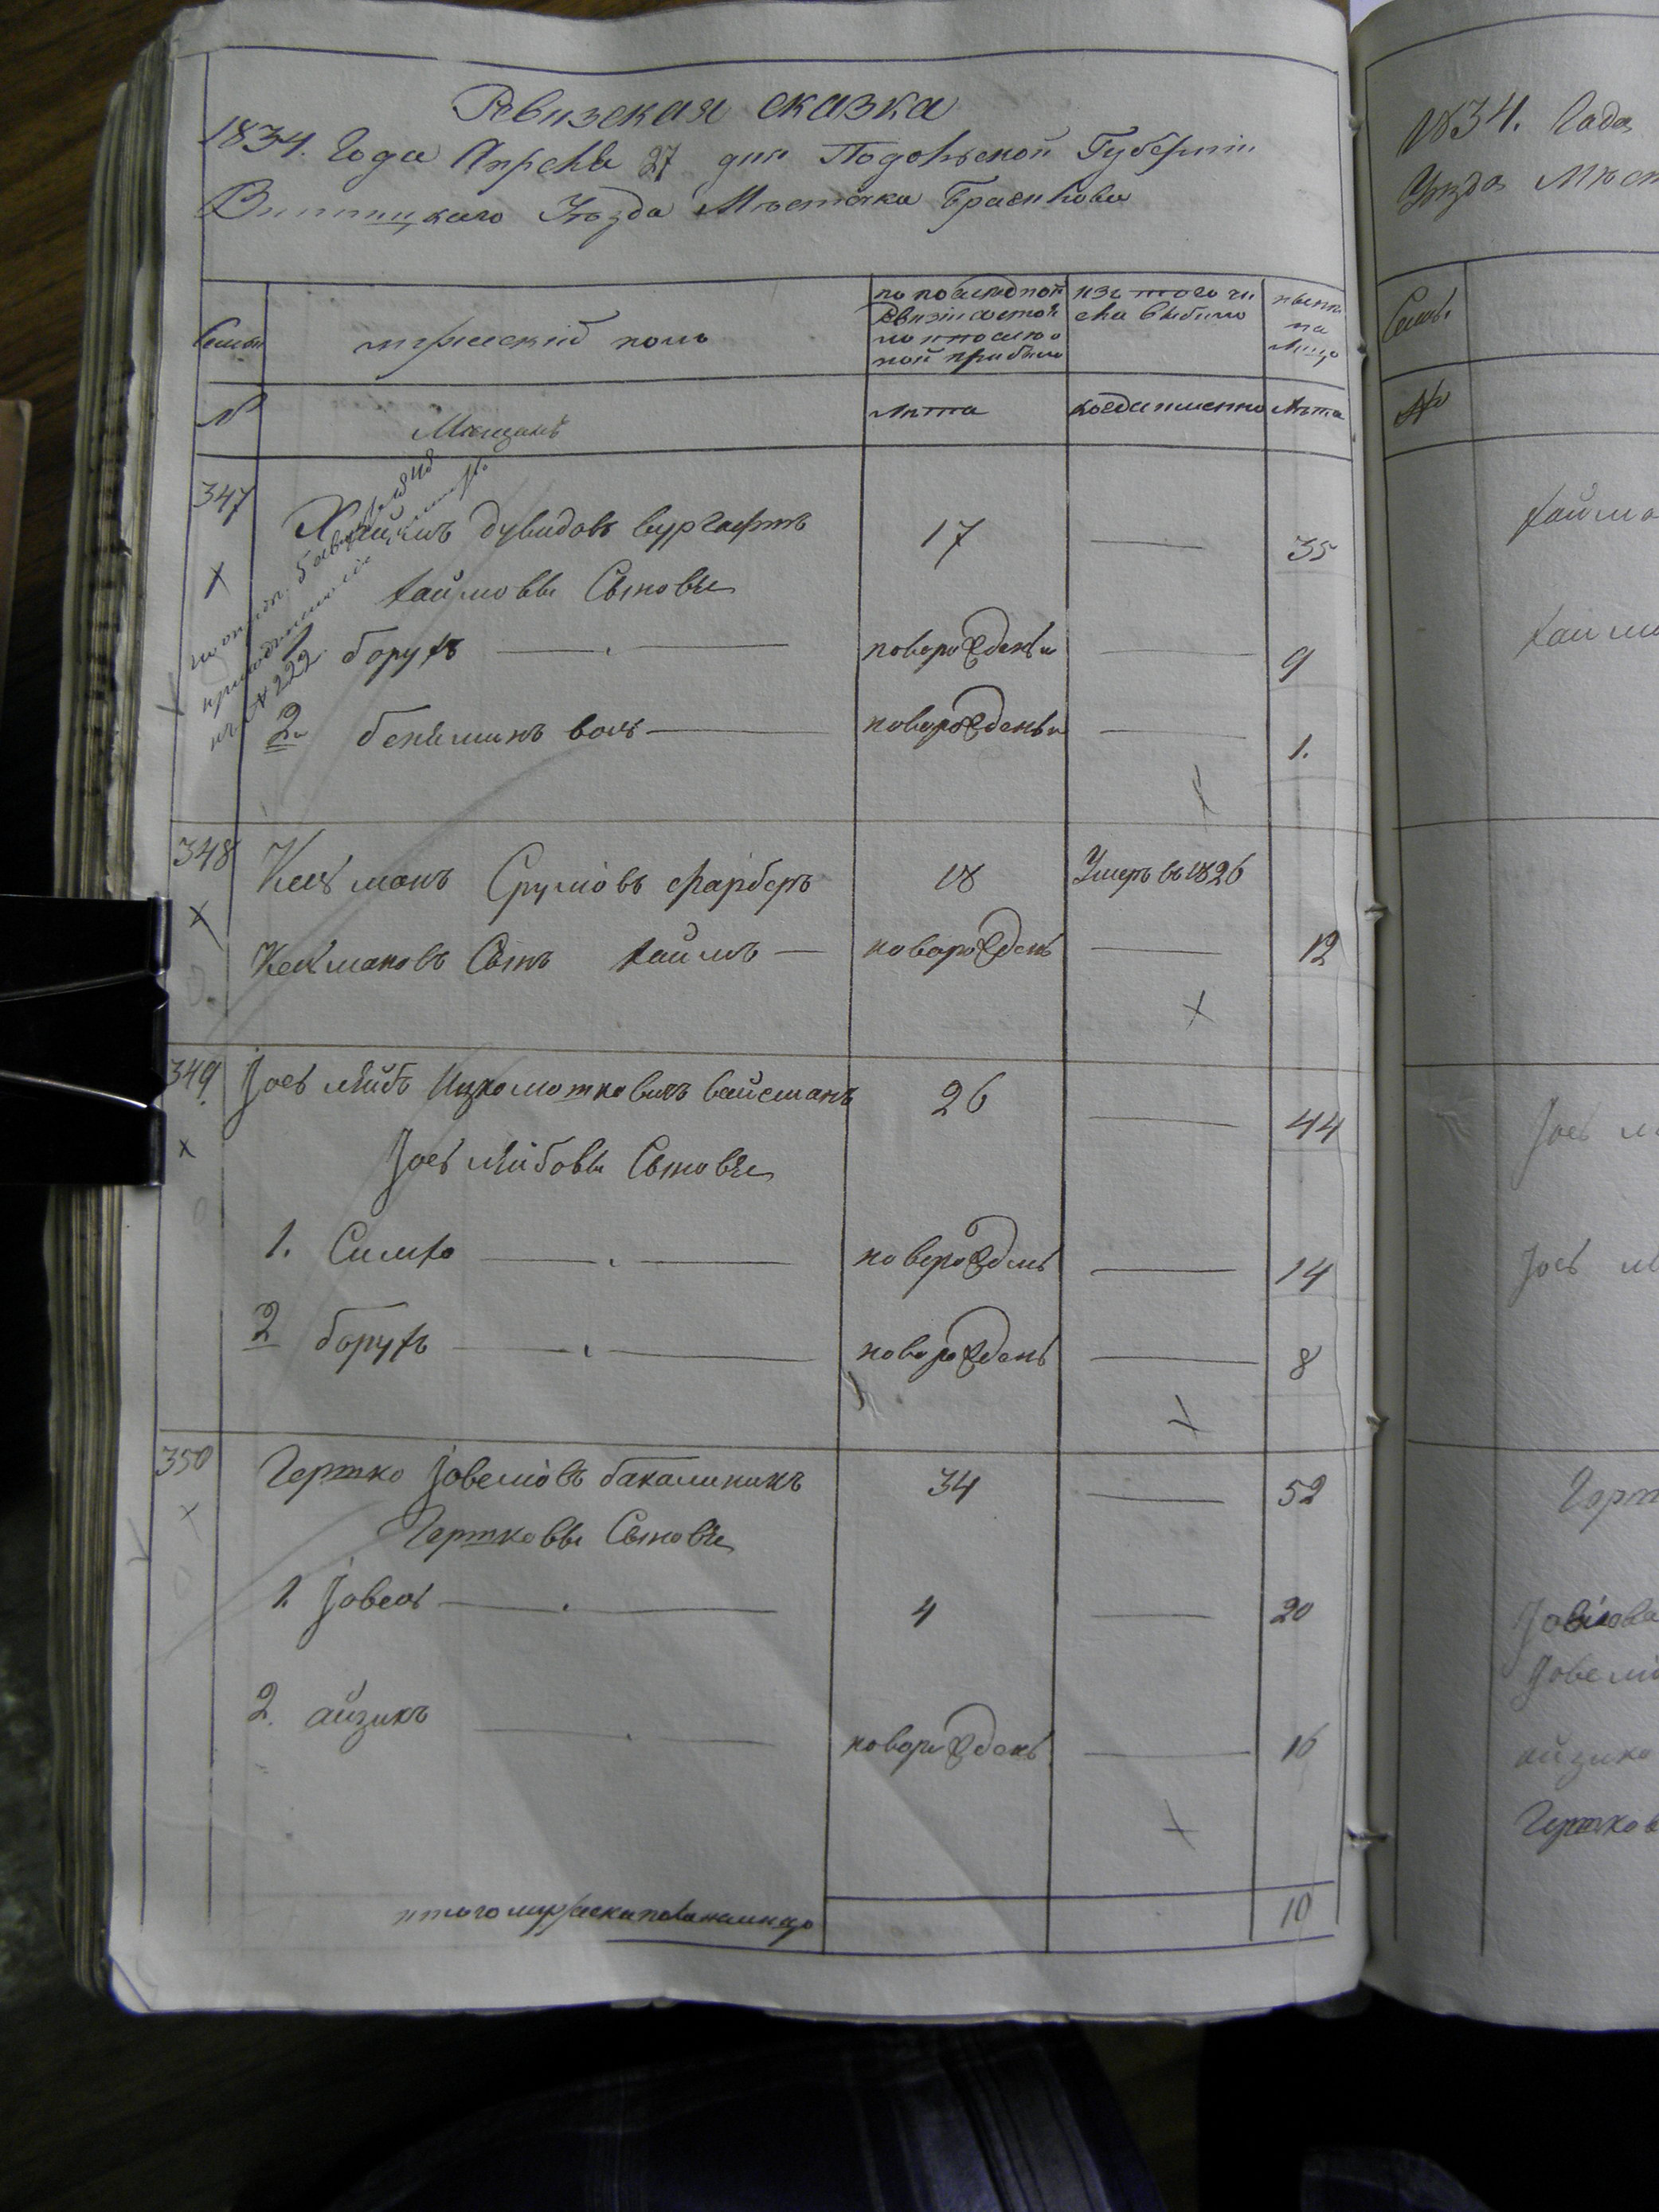 Ревизская сказка
1834. Года Апреля 27 дня Подольской Губернии
Винницкаго Уѣзда Мѣстечка Браилова
Семьи
мужеский полъ
по последной
Ревизии состоя
ло и после о
ной прибыло
изъ того чи
сла выбыло
ныне
на
лицо
№
Мещанъ
Лѣта
когда именно
Лѣта
347
Хаимъ Дувидовъ вургафтъ
17
35
Хаймовы Сыновья
1
борухъ
новорожденъ
9
2
бениминъ волъ
новорожденъ
1.
№ 222
348
Келманъ Срулiовъ фарберъ
18
Умеръ въ 1826
Келмановъ Сынъ Хаимъ
новорожденъ
12
349
Iось лейбъ Ицкомошковичъ вайсманъ
26
44
Iось лейбовы Сыновья
1. Симхо
новорожденъ
14
2 борухъ
новорожденъ
8
350
Гершко Iовелiовъ бакалиникъ
34
52
Гершковы Сыновья
1 Iовель
4
20
2. айзикъ
новорожденъ
16
итого мужеска пола налицо
10
1834. Года
Уѣзда Мѣст
Семьи
№
Хаймо
Хаимо
Iось л
Iось л
Герш
Iовелiова
Iовелiо
айзико
Гершков